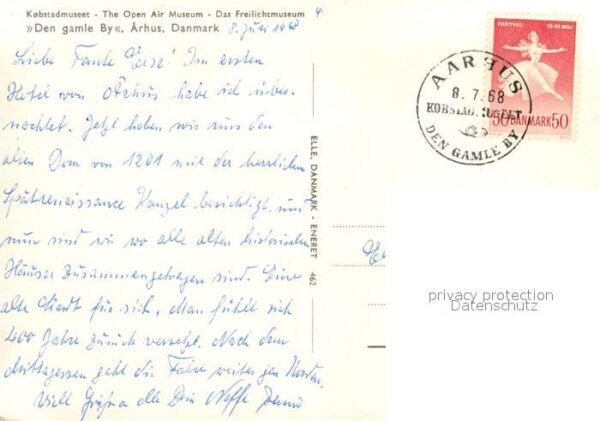 Købstadmuseet - The Open Air Museum - Das Freilichtmuseum 4
»Den gamle By«, Århus, Danmark 8. Juli 1968
Liebe Tante! Im ersten
Hotel von Århus habe ich über-
nachtet. Jetzt haben wir uns den
alten Dom von 1201 mit der herrlichen
Spätrenaissance Kanzel besichtigt und
nun sind wir wo alle alten historischen
Häuser zusammengetragen sind. Eine
alte Stadt für sich. Man fühlt sich
400 Jahre zurück versetzt. Nach dem
Mittagessen geht die Fahrt weiter gen Norden.
Viele Grüße alle Dein Neffe
ELLE, DANMARK - ENERET 462
FESTIVAL 15-31 MAJ
50 DANMARK 50
AARHUS
8.7.68
KØBSTADMUSEET
DEN GAMLE BY
privacy protection
Datenschutz